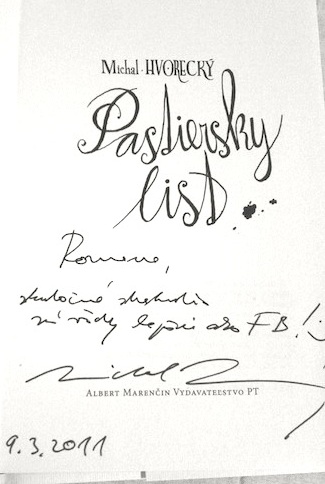 Michal HVORECKÝ
Pastiersky
list
skutočné
sú vždy lepšie ako FB! :)
ALBERT MARENČIN VYDAVATEĽSTVO PT
9.3.2011